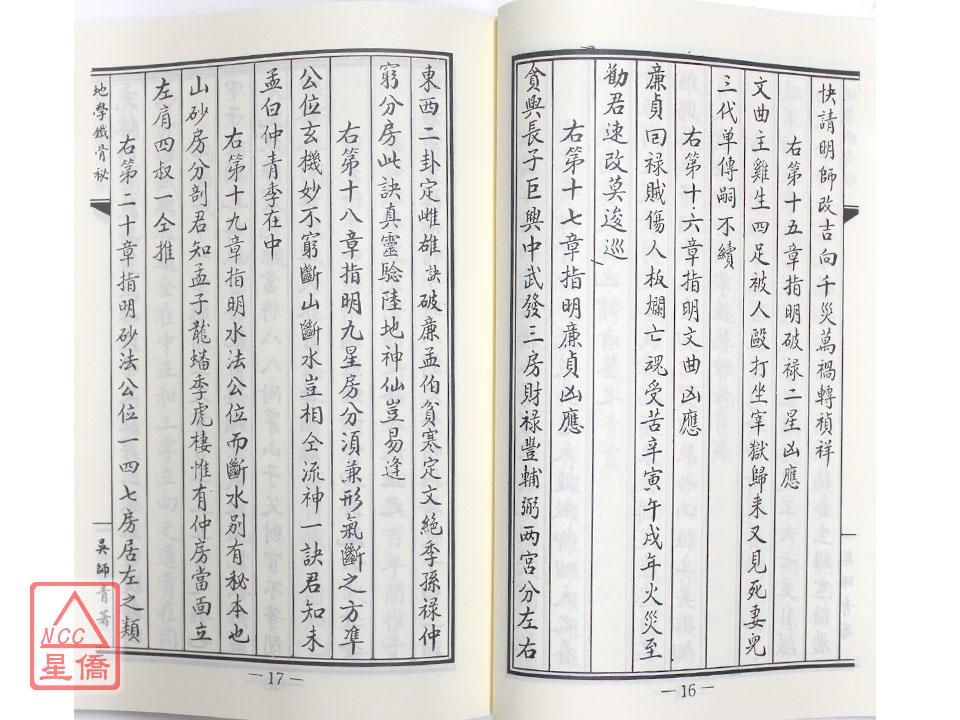 快請明師改吉向千災萬禍轉禎祥
右第十五章指明破祿二星凶應
文曲主雞生四足被人毆打坐宰獄歸来又見死妻兒
三代单傳嗣不續
右第十六章指明文曲凶應
廉貞囘禄賊傷人板爛亡魂受苦辛寅午戌年火災至
勸君速改莫逡巡
右第十七章指明廉貞凶應
貪興長子巨興中武發三房財禄豐輔弼两宮分左右
—16—
東西二卦定雌雄訣破廉孟伯貧寒定文絕季孫禄仲
窮分房此訣真靈驗陸地神仙豈易逢
右第十八章指明九星房分湏兼形氣斷之方凖
公位玄機妙不窮斷山斷水豈相仝流神一訣君知未
孟白仲青季在中
右第十九章指明水法公位而斷水别有秘本也
山砂房分剖君知孟子龍蟠季虎棲惟有仲房當面立
左肩四叔一仝推
右第二十章指明砂法公位一四七房居左之類
地學鐵骨秘
吳師青著
—17—
NCC
星僑